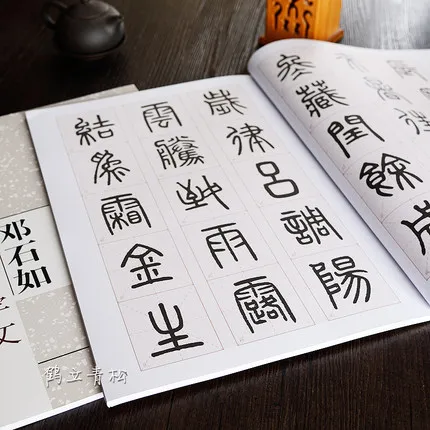 冬藏閏餘成
歲律呂調陽
雲騰致雨露
結爲霜金生
邓石如
字文
鹤立青松